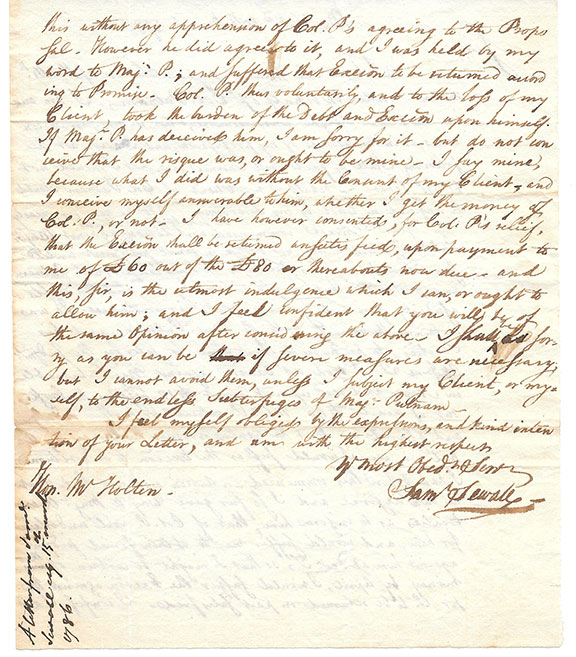 this without any apprehension of Col. P's agreeing to the Propo
sal. However he did agree to it, and I was held by my
word to Maj: P.; and suffered that Execion to be returned accord
ing to Promise. Col. P. thus voluntarily, and to the loss of my
Client, took the burden of the Debt and Execion upon himself.
If Maj: P. has deceived him, I am sorry for it - but do not con
ceive that the risque was, or ought to be mine - I say mine,
because what I did was without the Consent of my Client, and
I conceive myself answerable to him, whether I get the money of
Col: P., or not - I have however consented, for Col: P's relief,
that the Execion shall be returned unsatisfied, upon payment to
me of £60 out of the £80 or thereabouts now due - and
this, sir, is the utmost indulgence which I can, or ought to
allow him; and I feel confident that you will be of
the same Opinion after considering the above - I shall be sor
ry as you can be if severe measures are necessary;
but I cannot avoid them, unless I subject my Client, or my
self, to the endless Subterfuges of Maj: Putnam -
I feel myself obliged by the expressions, and kind inten
tion of your Letter, and am with the highest respect
Yr most Obedt Servt
Saml Sewall
Hon. Mr Holten -
A letter from Saml
Sewall aug. 15
1786.